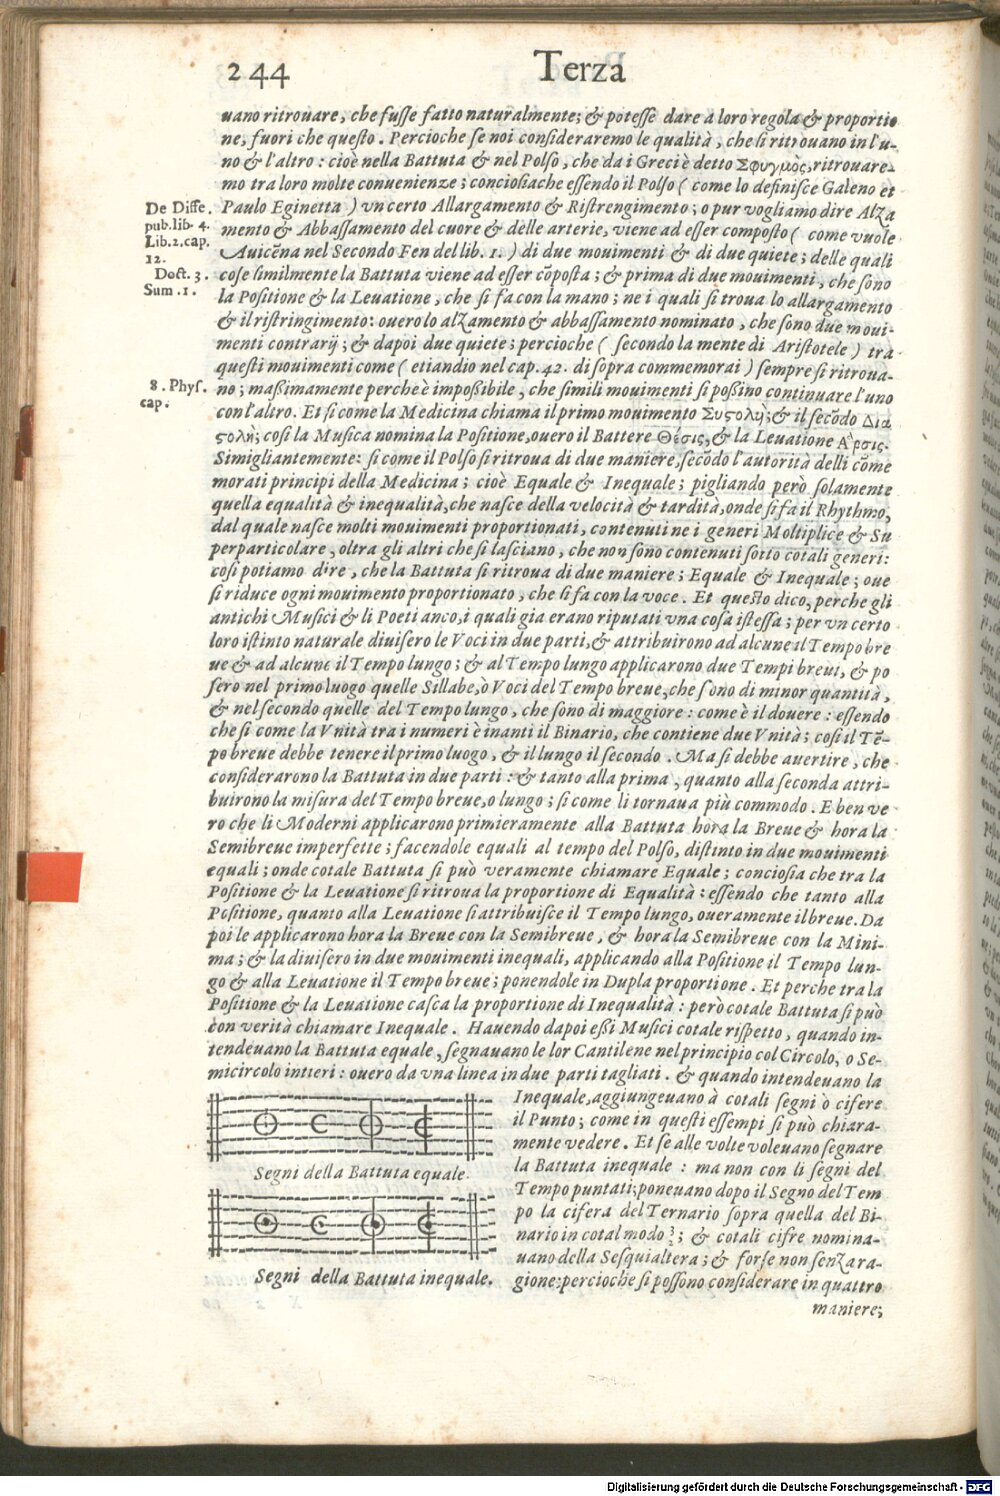 244 Terza
uano ritrouare, che fusse fatto naturalmente; & potesse dare à loro regola & proportio
ne, fuori che questo. Percioche se noi consideraremo le qualità, che si ritrouano in l'u-
no & l'altro: cioè nella Battuta & nel Polso, che da i Greci è detto Σφυγμὸς, ritrouare-
mo tra loro molte conuenienze; conciosiache essendo il Polso ( come lo definisce Galeno et
De Diffe. Paulo Eginetta ) vn certo Allargamento & Ristrengimento; o pur vogliamo dire Alza
pub. lib. 4. mento & Abbassamento del cuore & delle arterie, viene ad esser composto ( come vuole
Lib. 2. cap. Auicēna nel Secondo Fen del lib. 1. ) di due mouimenti & di due quiete; delle quali
12.
Doct. 3. cose similmente la Battuta viene ad esser cōposta; & prima di due mouimenti, che sono
Sum. 1. la Positione & la Leuatione, che si fa con la mano; ne i quali si troua lo allargamento
& il ristringimento: ouero lo alzamento & abbassamento nominato, che sono due moui-
menti contrarij; & dapoi due quiete; percioche ( secondo la mente di Aristotele ) tra
questi mouimenti come ( etiandio nel cap. 42. di sopra commemorai ) sempre si ritroua-
8. Phys. no; maßimamente perche è impoßibile, che simili mouimenti si poßino continuare l'uno
cap. con l'altro. Et si come la Medicina chiama il primo mouimento Συστολὴ; & il secōdo Δια
στολὴ; cosi la Musica nomina la Positione, ouero il Battere Θέσις, & la Leuatione Α῎ρσις.
Simigliantemente: si come il Polso si ritroua di due maniere, secōdo l'autorità delli cōme
morati principi della Medicina; cioè Equale & Inequale; pigliando però solamente
quella equalità & inequalità, che nasce della velocità & tardità, onde si fa il Rhythmo,
dal quale nasce molti mouimenti proportionati, contenuti ne i generi Moltiplice & Su
perparticolare, oltra gli altri che si lasciano, che non sono contenuti sotto cotali generi:
cosi potiamo dire, che la Battuta si ritroua di due maniere; Equale & Inequale; oue
si riduce ogni mouimento proportionato, che si fa con la voce. Et questo dico, perche gli
antichi Musici & li Poeti anco, i quali gia erano riputati vna cosa istessa; per vn certo
loro istinto naturale diuisero le Voci in due parti, & attribuirono ad alcune il Tempo bre
ue & ad alcune il Tempo lungo; & al Tempo lungo applicarono due Tempi breui, & po
sero nel primo luogo quelle Sillabe, ò Voci del Tempo breue, che sono di minor quantità,
& nel secondo quelle del Tempo lungo, che sono di maggiore: come è il douere: essendo
che si come la Vnità tra i numeri è inanti il Binario, che contiene due Vnità; cosi il Tē-
po breue debbe tenere il primo luogo, & il lungo il secondo. Ma si debbe auertire, che
considerarono la Battuta in due parti: & tanto alla prima, quanto alla seconda attri-
buirono la misura del Tempo breue, o lungo; si come li tornaua più commodo. E ben ve
ro che li Moderni applicarono primieramente alla Battuta hora la Breue & hora la
Semibreue imperfette; facendole equali al tempo del Polso, distinto in due mouimenti
equali; onde cotale Battuta si può veramente chiamare Equale; conciosia che tra la
Positione & la Leuatione si ritroua la proportione di Equalità: essendo che tanto alla
Positione, quanto alla Leuatione si attribuisce il Tempo lungo, oueramente il breue. Da
poi le applicarono hora la Breue con la Semibreue, & hora la Semibreue con la Mini-
ma; & la diuisero in due mouimenti inequali, applicando alla Positione il Tempo lun-
go & alla Leuatione il Tempo breue; ponendole in Dupla proportione. Et perche tra la
Positione & la Leuatione casca la proportione di Inequalità: però cotale Battuta si può
con verità chiamare Inequale. Hauendo dapoi eßi Musici cotale rispetto, quando in-
tendeuano la Battuta equale, segnauano le lor Cantilene nel principio col Circolo, o Se-
micircolo intieri: ouero da vna linea in due parti tagliati. & quando intendeuano la
Inequale, aggiungeuano à cotali segni ò cifere
il Punto; come in questi essempi si può chiara-
mente vedere. Et se alle volte voleuano segnare
la Battuta inequale: ma non con li segni del
Tempo puntati; poneuano dopo il Segno del Tem
po la cifera del Ternario sopra quella del Bi-
nario in cotal modo 3/2; & cotali cifre nomina-
uano della Sesquialtera; & forse non senza ra-
gione: percioche si possono considerare in quattro
maniere;
Segni della Battuta equale.
Segni della Battuta inequale.
Digitalisierung gefördert durch die Deutsche Forschungsgemeinschaft - DFG